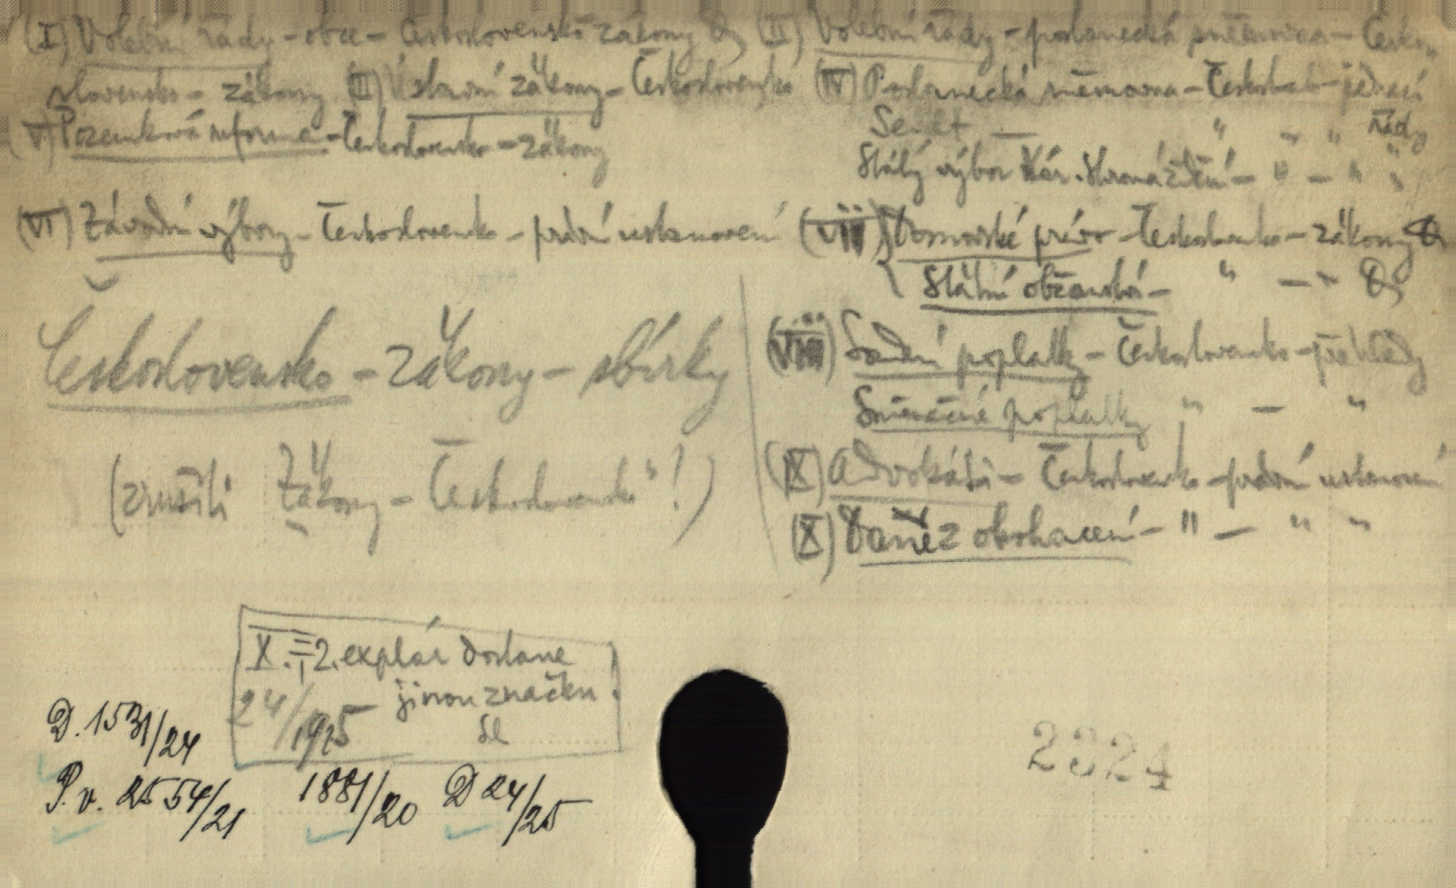 (I) Volební řády – obce – Československo zákony (II) Volební řády – poslanecká sněmovna – Česko-
slovensko – zákony (III) Ústavní zákony – Československo (IV) Poslanecká sněmovna – Českosl – jednací
(V) Pozemková reforma – Československo – zákony
Senát — " – " řády
Stálý výbor Nár. shromáždění – " – " "
(VI) Závodní výbory – Československo – právní ustanovení (VII) Domovské právo – Československo – zákony
Státní občanství – " – "
Československo – zákony – sbírky
(VIII) Soudní poplatky – Československo – přehledy
Směnečné poplatky " – "
(zrušiti Zákony – Československo"!)
(IX) Advokáti – Československo – právní ustanovení
(X) Daně z obohacení – " – " "
X. = 2. explár dostane
24/1925 – jinou značku.
D. 1531/24
P. v. 2554/21 1881/20 D 24/25
2324